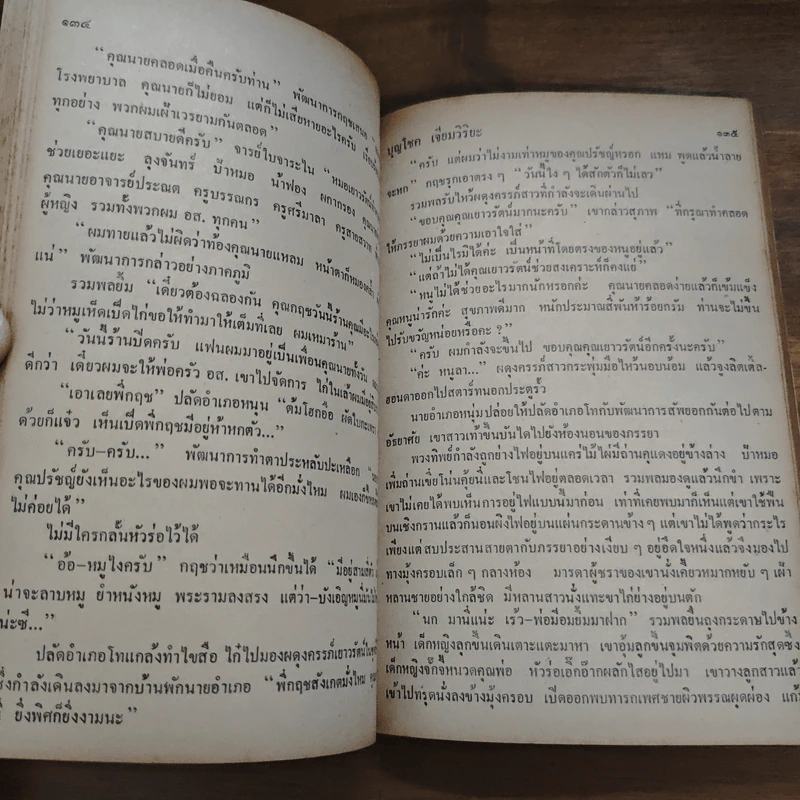 ๑๓๔
“คุณนายคลอดเมื่อคืนครับท่าน” พัฒนาการกฤช
โรงพยาบาล คุณนายก็ไม่ยอม แต่ก็ไม่เสียหายอะไรครับ
ทุกอย่าง พวกผมเฝ้าเวรยามกันตลอด”
“คุณนายสบายดีครับ” จารย์ใบจาระไน “หมอเยาวรัตน์
ช่วยเยอะแยะ ลุงจันทร์ ป้าหมอ น้าฟอง ผกากรอง
คุณนายอาจารย์ประณต ครูบรรณกร ครูศรีมาลา ครูสายสวาท
ผู้หญิง รวมทั้งพวกผม อส. ทุกคน”
“ผมทายแล้วไม่ผิดว่าท้องคุณนายแหลม หน้าตาก็หมองคล้ำ
แน่” พัฒนาการกล่าวอย่างภาคภูมิ
รวมพลยิ้ม “เดี๋ยวต้องฉลองกัน คุณกฤชวันนี้ร้านคุณมีอะไร
ไม่ว่าหมูเห็ดเป็ดไก่ขอให้ทำมาให้เต็มที่เลย ผมเหมาร้าน”
“วันนี้ร้านปิดครับ แฟนผมมาอยู่เป็นเพื่อนคุณนายทั้งวัน
ดีกว่า เดี๋ยวผมจะให้พ่อครัว อส. เข้าไปจัดการ ไก่ในเล้าผมมีอยู่
“เอาเลยพี่กฤช” ปลัดอำเภอหนุน “ต้มโฮกอือ ผัดใบกะเพรา
ด้วยก็แจ๋ว เห็นเป็ดพี่กฤชมีอยู่ห้าหกตัว...”
“ครับ–ครับ...” พัฒนาการทำตาประหลับประเหลือก
คุณปรัชญ์ยังเห็นอะไรของผมพอจะทานได้อีกมั่งไหม ผมเองก็
ไม่ค่อยได้”
ไม่มีใครกลั้นหัวร่อไว้ได้
“อ้อ–หมูไงครับ” กฤชว่าเหมือนนึกขึ้นได้ “มีอยู่สามสี่ตัว
น่าจะลาบหมู ยำหนังหมู พระรามลงสรง แต่ว่า–บังเอิญหมูมัน
น่ะซี...”
ปลัดอำเภอโทแกล้งทำไขสือ ไก๋ไปมองผดุงครรภ์เยาวรัตน์ใน
ซึ่งกำลังเดินลงมาจากบ้านพักนายอำเภอ “พี่กฤชสังเกตมั่งไหม
ยิ่งพิศก็ยิ่งงามนะ”
บุญโชค เจียมวิริยะ ๑๓๕
“ครับ แต่ผมว่าไม่งามเท่าหมูของคุณปรัชญ์หรอก แหม พูดแล้วน้ำลาย
จะหก” กฤชรุกเอาตรง ๆ “วันนี้ไง ๆ ได้สักตัวก็ไม่เลว”
รวมพลรับไหว้ผดุงครรภ์สาวที่กำลังจะเดินผ่านไป
“ขอบคุณคุณเยาวรัตน์มากนะครับ” เขากล่าวสุภาพ “ที่กรุณาทำคลอด
ให้ภรรยาผมด้วยความเอาใจใส่”
“ไม่เป็นไรมิได้ค่ะ เป็นหน้าที่โดยตรงของหนูอยู่แล้ว”
“แต่ถ้าไม่ได้คุณเยาวรัตน์ช่วยสงเคราะห์ก็คงแย่”
“หนูไม่ได้ช่วยอะไรมากนักหรอกค่ะ คุณนายคลอดง่ายแล้วก็เข้มแข็ง
คุณหนูน่ารักค่ะ สุขภาพดีมาก หนักประมาณสี่พันห้าร้อยกรัม ท่านจะไม่ขึ้น
ไปรับขวัญหน่อยหรือคะ ?”
“ครับ ผมกำลังจะขึ้นไป ขอบคุณคุณเยาวรัตน์อีกครั้งนะครับ”
“ค่ะ หนูลา...” ผดุงครรภ์สาวกระพุ่มมือไหว้นอบน้อม แล้วจูงลิตเติ้ล-
ฮอนดาออกไปสตาร์ทนอกประตูรั้ว
นายอำเภอหนุ่มปล่อยให้ปลัดอำเภอโทกับพัฒนาการสัพยอกกันต่อไปตาม
อัธยาศัย เขาสาวเท้าขึ้นบันไดไปยังห้องนอนของภรรยา
พวงทิพย์กำลังถูกย่างไฟอยู่บนแคร่ไม้ไผ่มีถ่านคุแดงอยู่ข้างล่าง ป้าหมอ
เพิ่มถ่านเขี่ยโน่นคุ้ยนี่และโชนไฟอยู่ตลอดเวลา รวมพลมองดูแล้วนึกขำ เพราะ
เขาไม่เคยได้พบเห็นการอยู่ไฟแบบนี้มาก่อน เท่าที่เคยพบมาก็เห็นแต่เขาใช้ฟืน
บนเชิงกรานแล้วก็นอนผิงไฟอยู่บนแผ่นกระดานข้าง ๆ แต่เขาไม่ได้พูดว่ากระไร
เพียงแต่สบประสานสายตากับภรรยาอย่างเงียบ ๆ อยู่อึดใจหนึ่งแล้วจึงมองไป
ทางมุ้งครอบเล็ก ๆ กลางห้อง มารดาผู้ชราของเขานั่งเคี้ยวหมากหยับ ๆ เฝ้า
หลานชายอย่างใกล้ชิด มีหลานสาวนั่งแทะขาไก่ย่างอยู่บนตัก
“นก มานี่แน่ะ เร้ว–พ่อมีอมยิ้มมาฝาก” รวมพลยื่นถุงกระดาษไปข้าง
หน้า เด็กหญิงลุกขึ้นเดินเตาะแตะมาหา เขาอุ้มลูกขึ้นจุมพิตด้วยความรักสุดซึ้ง
เด็กหญิงจั๊กจี้หนวดคุณพ่อ หัวร่อเอิ๊กอ๊ากผลักไสอยู่ไปมา เขาวางลูกสาวแล้ว
เข้าไปทรุดนั่งลงข้างมุ้งครอบ เปิดออกพบทารกเพศชายผิวพรรณผุดผ่อง แก้ม